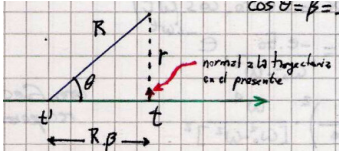 cos θ = β =
R
r
θ
normal a la trayectoria
en el presente
t'
t
R β